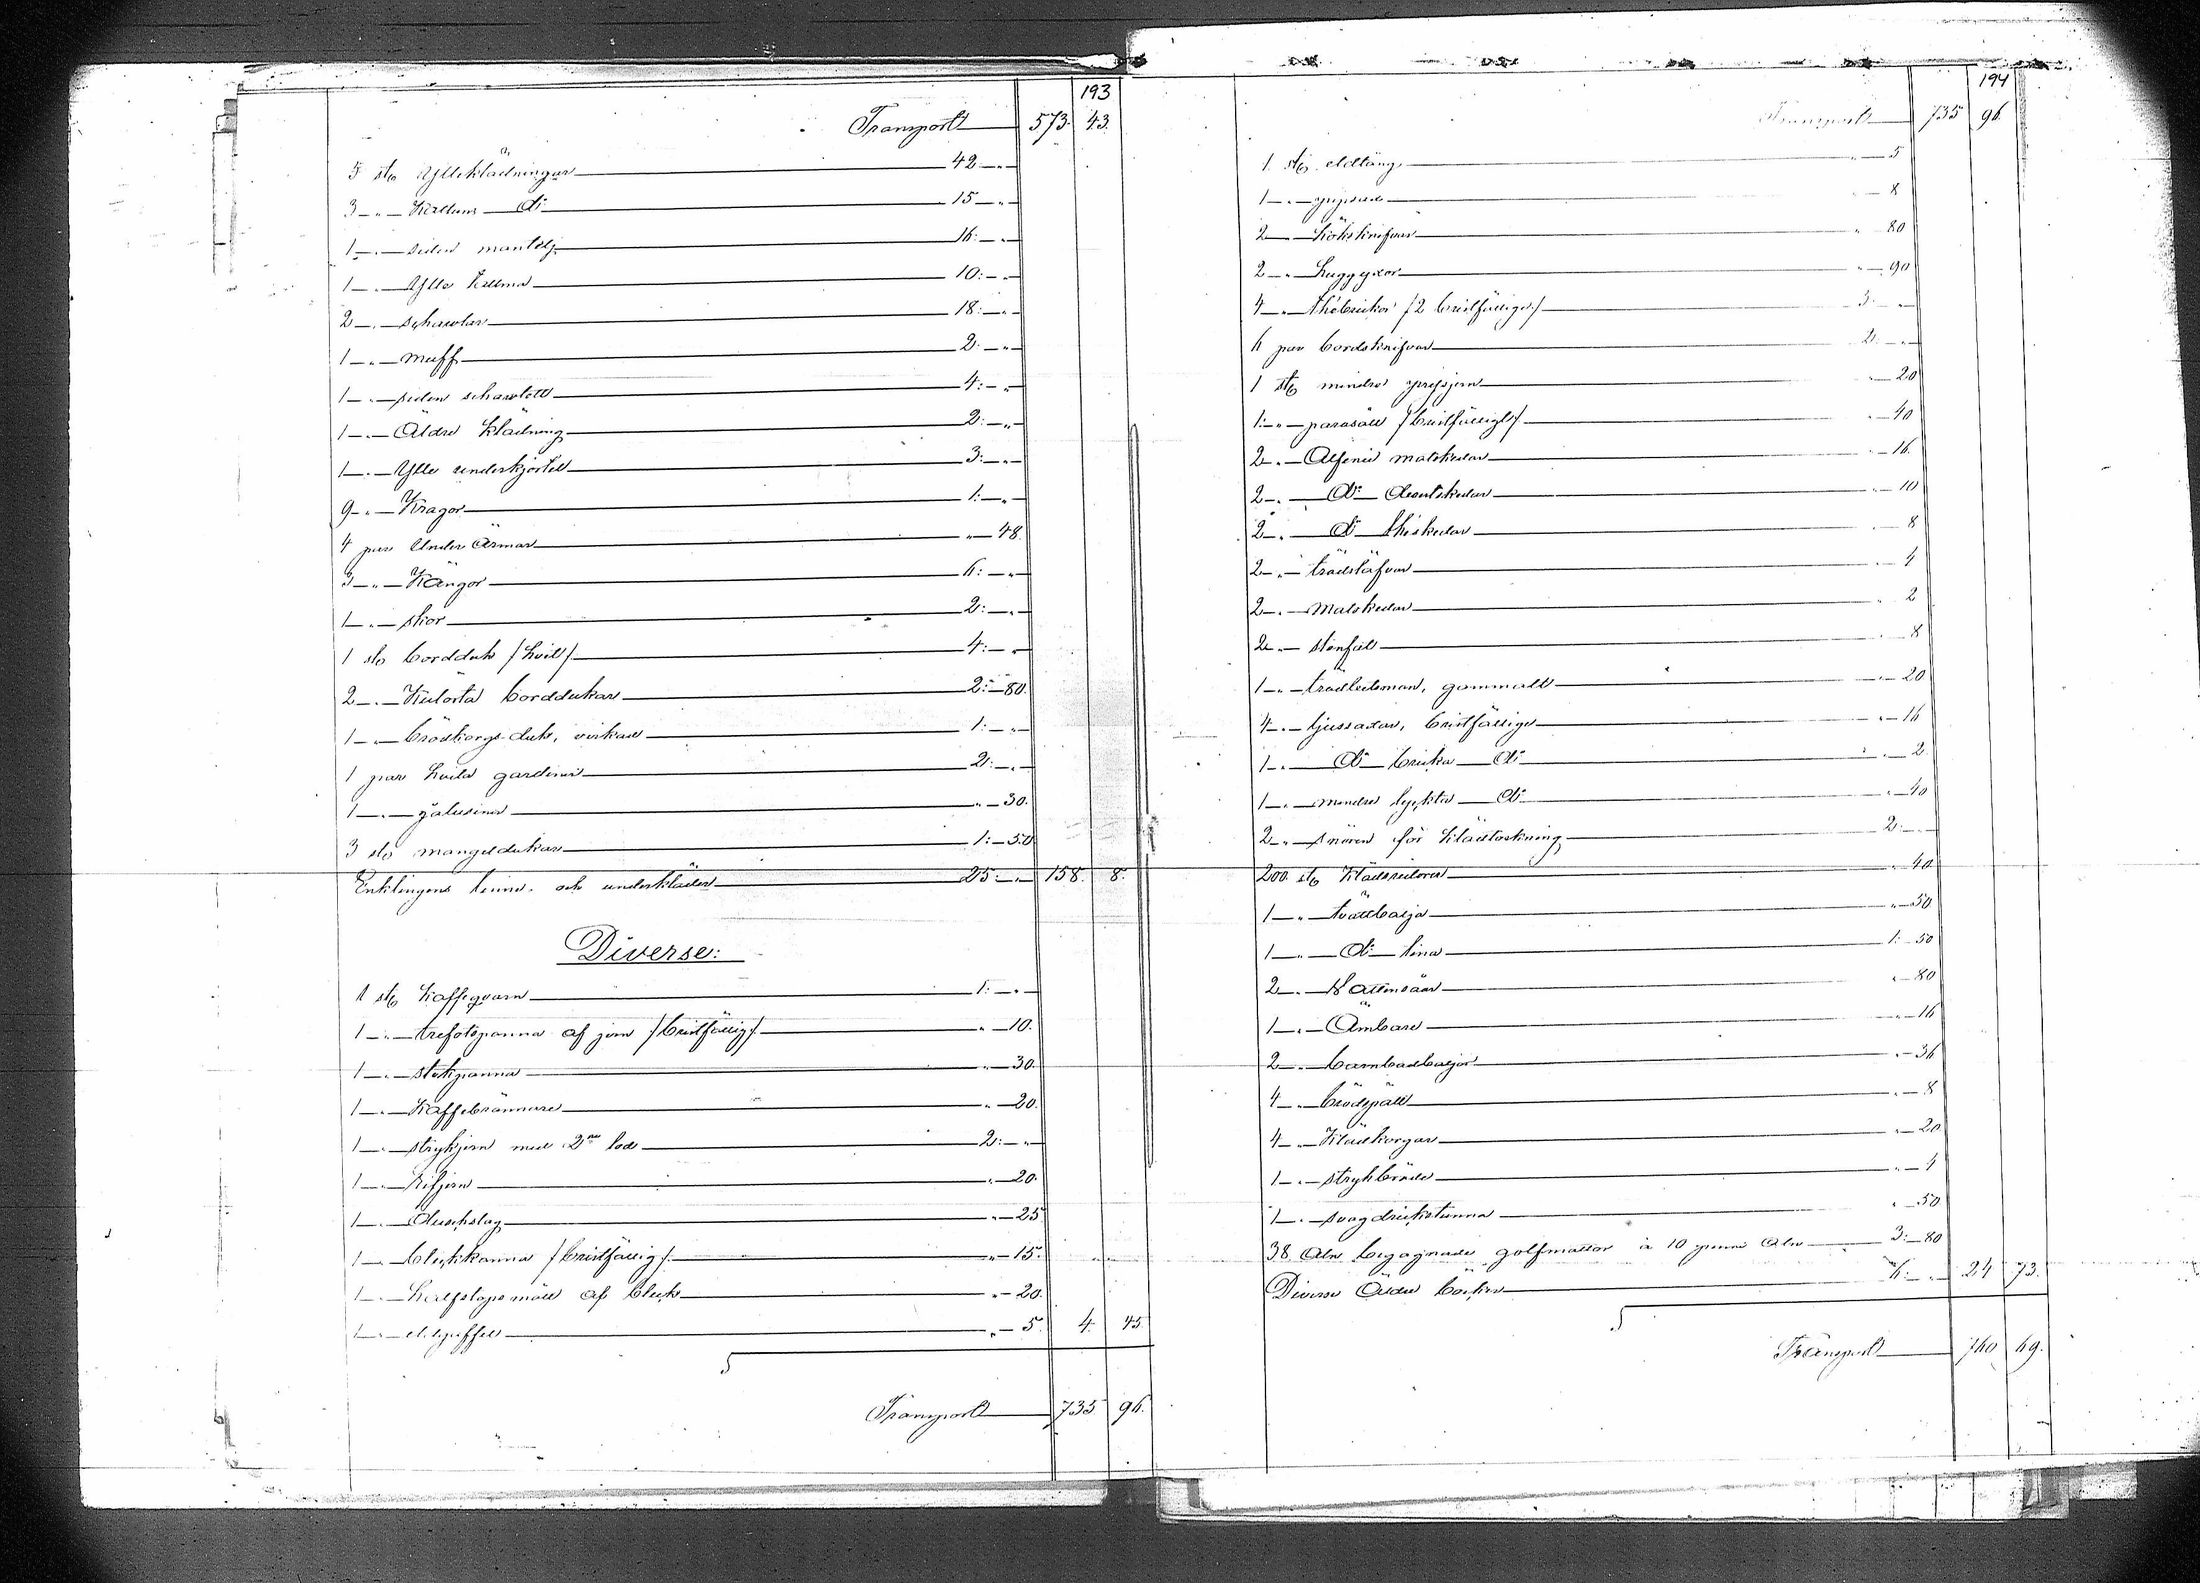 193
Transport 573. 43.
5 sto Ylleklädningar 42:—„
3 — „ — Kattuns d:o 15 — „
1 — „ — siden mantilj 16:— „
1 — „ — Ylle 10:— „
2 — „ — schawlar 18:— „
1 — „ — muff 2:— „
1 — „ — siden schawlett 4:— „
1 — „ — Äldre klädning 2:— „
1 — „ — Ylle underkjortel 3:— „
9 — „ — Kragor 1:— „
4 par Under Ärmar „ — 48.
3 — „ — Kängor 6:— „
1 — „ — skor 2:— „
1 sto bordduk /hvit/ 4:— „
2 — „ — Kulörta borddukar 2:— 80.
1 — „ — brödkorgs-duk, virkad 1:— „
1 par hvita gardiner 2:— „
1 — „ — jalusiner „ — 30.
3 sto mangeldukar 1:— 50
Enklingens linne- och underkläder 25:— „ 158. 8.
Diverse:
1 sto Kaffeqvarn 1:— „
1 — „ — trefotspanna af jern /bristfällig/ „ — 10.
1 — „ — stekpanna „ — 30.
1 — „ — Kaffebrännare „ — 20.
1 — „ — strykjern med 2ne lod 2:— „
1 — „ — Rifjern „ — 20.
1 — „ — Durchslag „ — 25
1 — „ — bleckkanna /bristfällig/ „ — 15.
1 — „ — halfstopsmått af bleck „ — 20.
1 — „ — eldgaffel „ — 5. 4. 45
Transport 735 96.
194
Transport 735 96.
1 sto eldtång „ — 5
1 — „ — „ — 8
2 — „ — Köksknifvar „ 80
2 — „ — huggyxor „ — 90
4 — „ — thébrickor /2 bristfälliga/ 3:— „
6 par bordsknifvar 2:— „
1 sto mindre pressjern „ — 20
1 — „ — parasoll /bristfälligt/ „ — 40
2 — „ — Alfenid matskedar „ — 16.
2 — „ — d:o desertskedar „ — 10
2 — „ — d:o théskedar „ — 8
2 — „ — trädslefvar „ — 4
2 — „ — Matskedar „ — 2
2 — „ — stenfat „ — 8
1 — „ — gammalt „ — 20
4 — „ — ljussaxar, bristfälliga „ — 16
1 — „ — d:o bricka d:o „ — 2
1 — „ — mindre lyckta d:o „ — 40
2 — „ — snören för klädtorkning 2:— „
200 sto „ — 40
1 — „ — tvättbalja „ — 50
1 — „ — d:o lina 1:— 50
2 — „ — Vattensåar „ — 80
1 — „ — Ämbare „ — 16
2 — „ — „ — 36
4 — „ — brödspätt „ — 8
4 — „ — Klädkorgar „ — 20
1 — „ — strykbräde „ — 4
1 — „ — svagdrickstunna „ 50
38 Aln begagnade golfmattor à 10 Aln 3:— 80
Diverse Äldre böcker 6:— „ 24 73.
Transport 760 69.